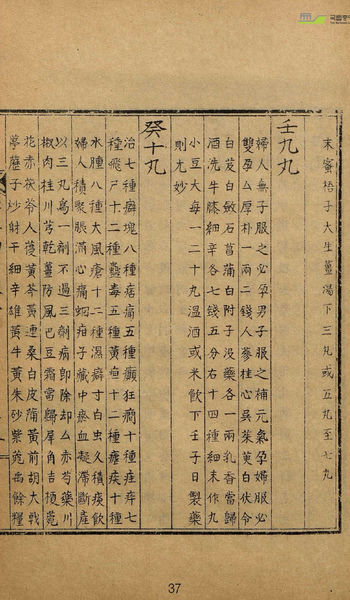 末蜜梧子大生薑湯下三丸或五丸至七丸
壬九丸
婦人無子服之必孕男子服之補元氣孕婦服必
雙孕厶厚朴一兩二錢人蔘桂心吳茱萸白伏令
白芨白斂石菖蒲白附子沒藥各一兩乳香當歸
酒洗牛膝細辛各七錢五分右十四種細末作丸
小豆大每一二十丸溫酒或米飮下壬子日製藥
則尤妙
癸十丸
治七種癖塊八種痞痛五種癲狂癎十種疰疾七
種飛尸十二種蠱毒五種黃疸十二種瘧疾十種
水腫八種大風癮十二種濕癖寸白虫久積痰飮
婦人積聚脹滿心痛蛔疳子藏中瘀血凝滯斷産
以三丸爲一劑不過三劑病卽除却厶赤芍藥川
椒肉桂川芎乾薑防風巴豆霜當歸犀角吉梗莞
花赤茯苓人葠黃芩黃連桑白皮蒲黃前胡大戟
葶藶子炒射干細辛雄黃牛黃朱砂紫菀禹餘糧
37